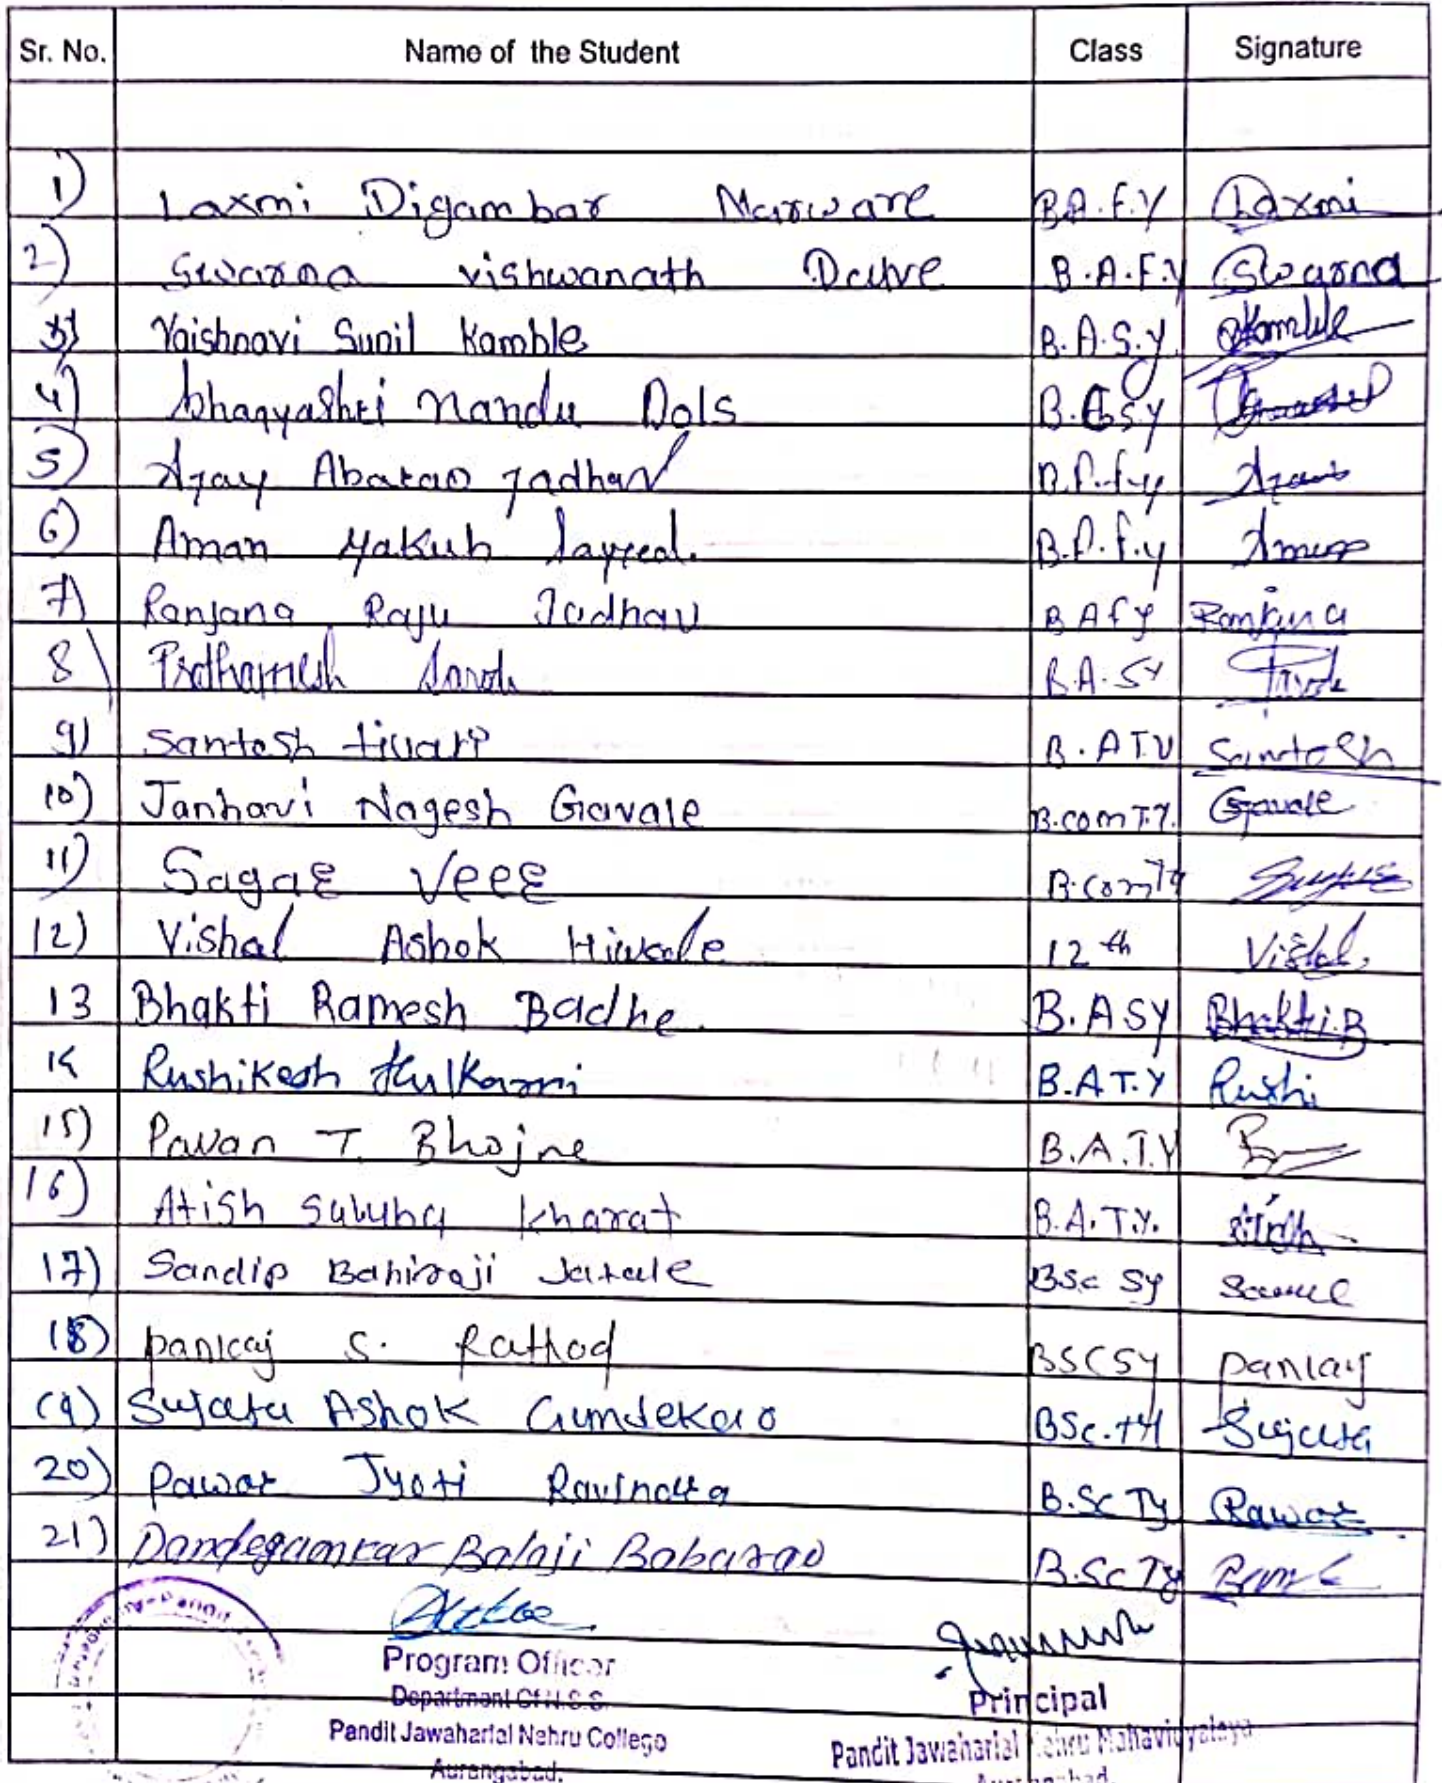 Sr. No. Name of the Student Class Signature
1) Laxmi Digambar Narware B.A.F.Y Laxmi
2) Swarna vishwanath Dalve B.A.F.Y Swarna
3) Vaishnavi Sunil Kamble B.A.S.Y Kamble
4) bhagyashri Nandu Dols B.A.S.Y
5) Ajay Abarao Jadhav B.A.f.y Ajay
6) Aman Yakub Sayyed. B.A.f.y Aman
7) Ranjana Raju Jadhav B A f y Ranjana
8) Prathamesh Sarode B.A.SY Sarode
9) Santosh tivari B.A T.Y Santosh
10) Janhavi Nagesh Gavale B.com T.Y. Gavale
11) Sagar Veer B.com Ty
12) Vishal Ashok Hivale 12th Vishal
13 Bhakti Ramesh Badhe. B.A SY Bhakti.B
14 Rushikesh Kulkarni B.A T.Y Rushi
15) Pavan T. Bhojne B.A.T.Y
16) Atish Kharat B.A.T.Y. Atish
17) Sandip Bahiraji Jatale BSc Sy
18) pankaj S. Rathod BSC SY pankaj
19) Sujata Ashok Gundekar BSc.tY Sujata
20) Pawar Jyoti Ravindra B.Sc Ty Pawar
21) Dandegamkar Balaji Babarao B.Sc Ty
Program Officer
Department Of N.S.S.
Pandit Jawaharlal Nehru College
Aurangabad.
Principal
Pandit Jawaharlal Nehru Mahavidyalaya
Aurangabad.